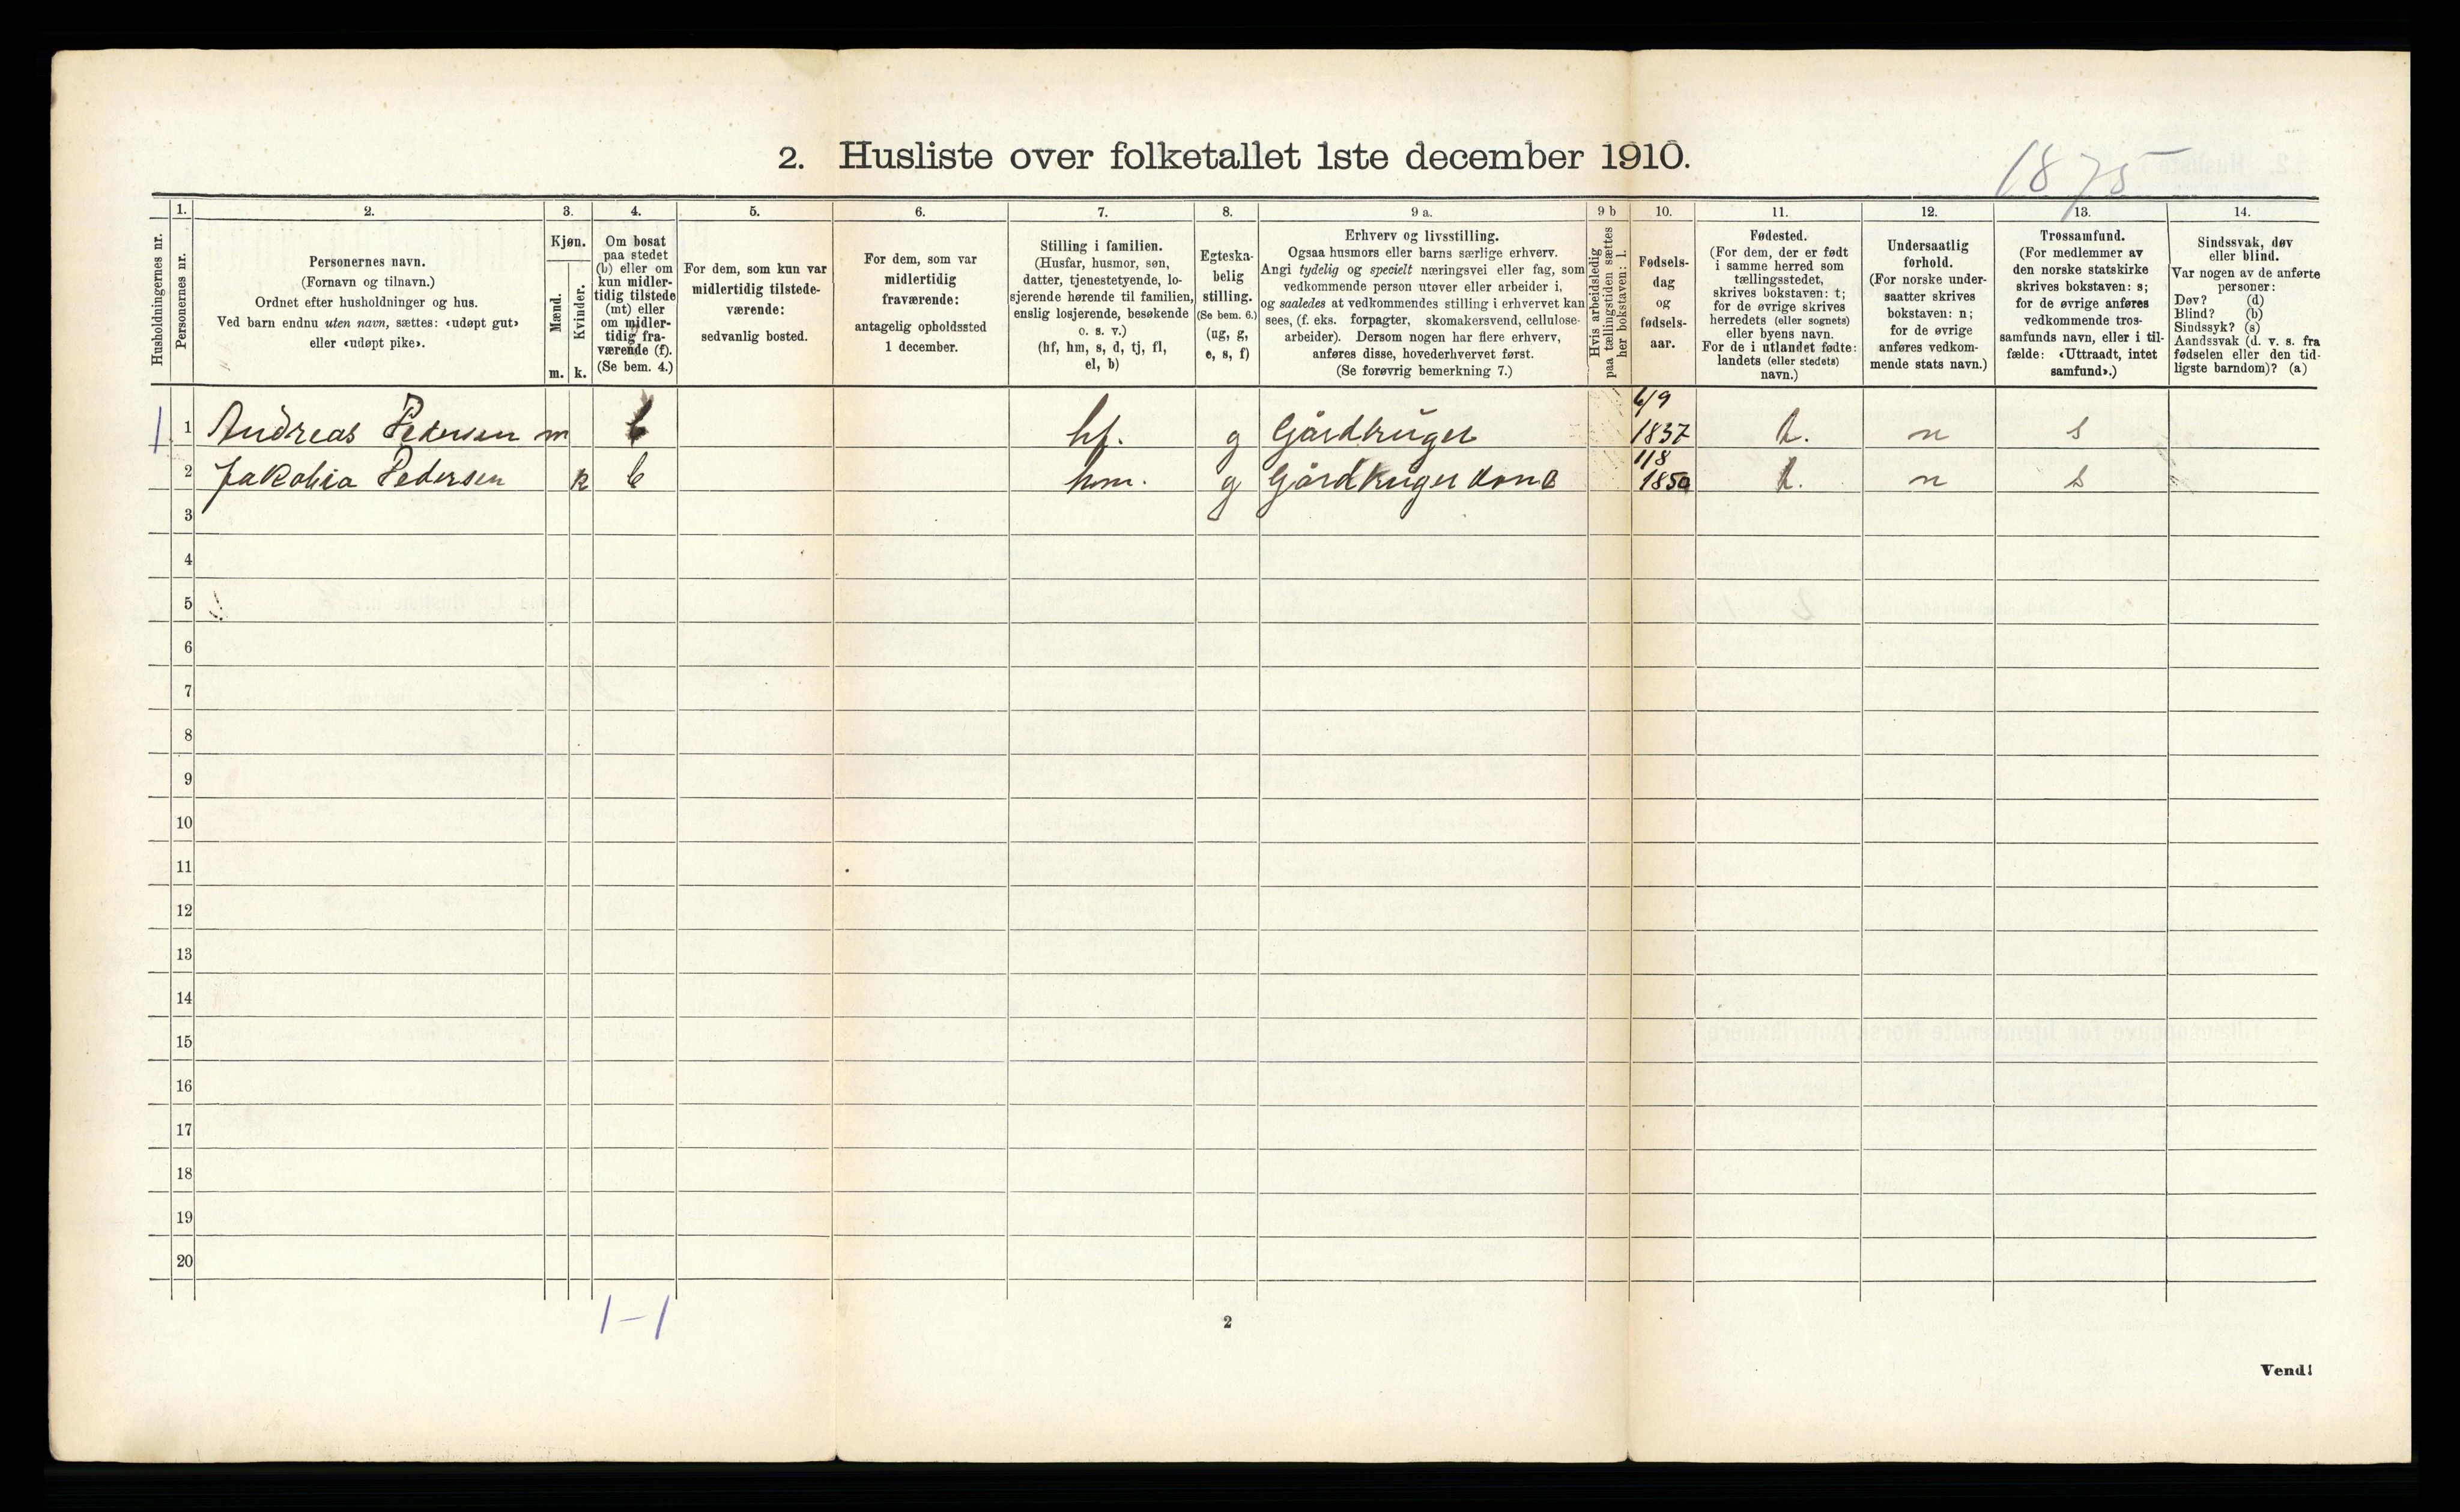 2. Husliste over folketallet 1ste december 1910.
1875
Husholdningernes nr.
1. Personernes nr.
2. Personernes navn.
(Fornavn og tilnavn.)
Ordnet efter husholdninger og hus.
Ved barn endnu uten navn, sættes: «udøpt gut»
eller «udøpt pike».
3. Kjøn.
Mænd. Kvinder.
m. k.
4. Om bosat
paa stedet
(b) eller om
kun midler-
tidig tilstede
(mt) eller
om midler-
tidig fra-
værende (f).
(Se bem. 4.)
5. For dem, som kun var
midlertidig tilstede-
værende:
sedvanlig bosted.
6. For dem, som var
midlertidig
fraværende:
antagelig opholdssted
1 december.
7. Stilling i familien.
(Husfar, husmor, søn,
datter, tjenestetyende, lo-
sjerende hørende til familien,
enslig losjerende, besøkende
o. s. v.)
(hf, hm, s, d, tj, fl,
el, b)
8. Egteska-
belig
stilling.
(Se bem. 6.)
(ug, g,
e, s, f)
9 a. Erhverv og livsstilling.
Ogsaa husmors eller barns særlige erhverv.
Angi tydelig og specielt næringsvei eller fag, som
vedkommende person utøver eller arbeider i,
og saaledes at vedkommendes stilling i erhvervet kan
sees, (f. eks. forpagter, skomakersvend, cellulose-
arbeider). Dersom nogen har flere erhverv,
anføres disse, hovederhvervet først.
(Se forøvrig bemerkning 7.)
9 b Hvis arbeidsledig
paa tællingstiden sættes
her bokstaven: l.
10. Fødsels-
dag
og
fødsels-
aar.
11. Fødested.
(For dem, der er født
i samme herred som
tællingsstedet,
skrives bokstaven: t;
for de øvrige skrives
herredets (eller sognets)
eller byens navn.
For de i utlandet fødte:
landets (eller stedets)
navn.)
12. Undersaatlig
forhold.
(For norske under-
saatter skrives
bokstaven: n;
for de øvrige
anføres vedkom-
mende stats navn.)
13. Trossamfund.
(For medlemmer av
den norske statskirke
skrives bokstaven: s;
for de øvrige anføres
vedkommende tros-
samfunds navn, eller i til-
fælde: «Uttraadt, intet
samfund».)
14. Sindssvak, døv
eller blind.
Var nogen av de anførte
personer:
Døv? (d)
Blind? (b)
Sindssyk? (s)
Aandssvak (d. v. s. fra
fødselen eller den tid-
ligste barndom)? (a)
1 1 Andreas Pedersen m b hf. g Gårdbruger 6/9 1837 t. n s
2 Jakobia Pedersen k b hm. g Gårdbruger kone 1/8 1850 t. n s
3
4
5
6
7
8
9
10
11
12
13
14
15
16
17
18
19
20
1-1
2
Vend!